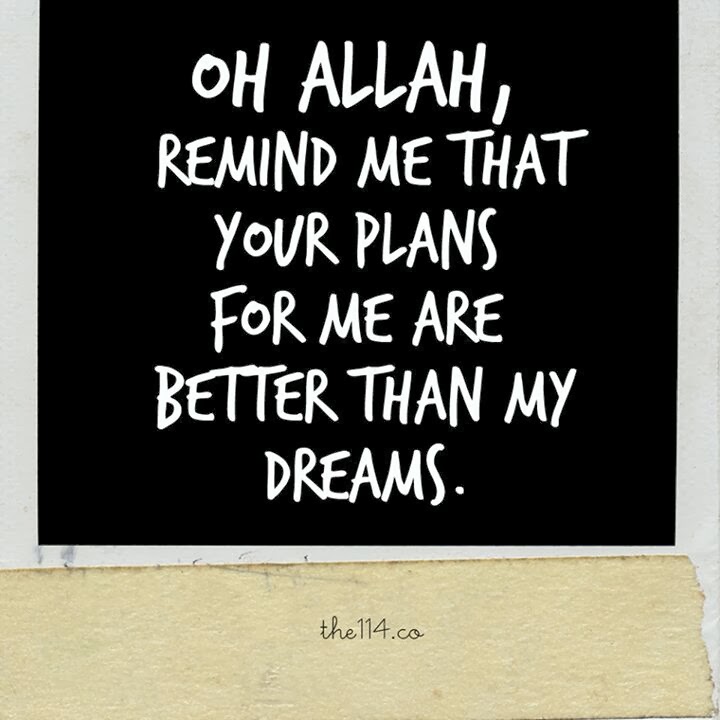 OH ALLAH,
REMIND ME THAT
YOUR PLANS
FOR ME ARE
BETTER THAN MY
DREAMS.
the114.co